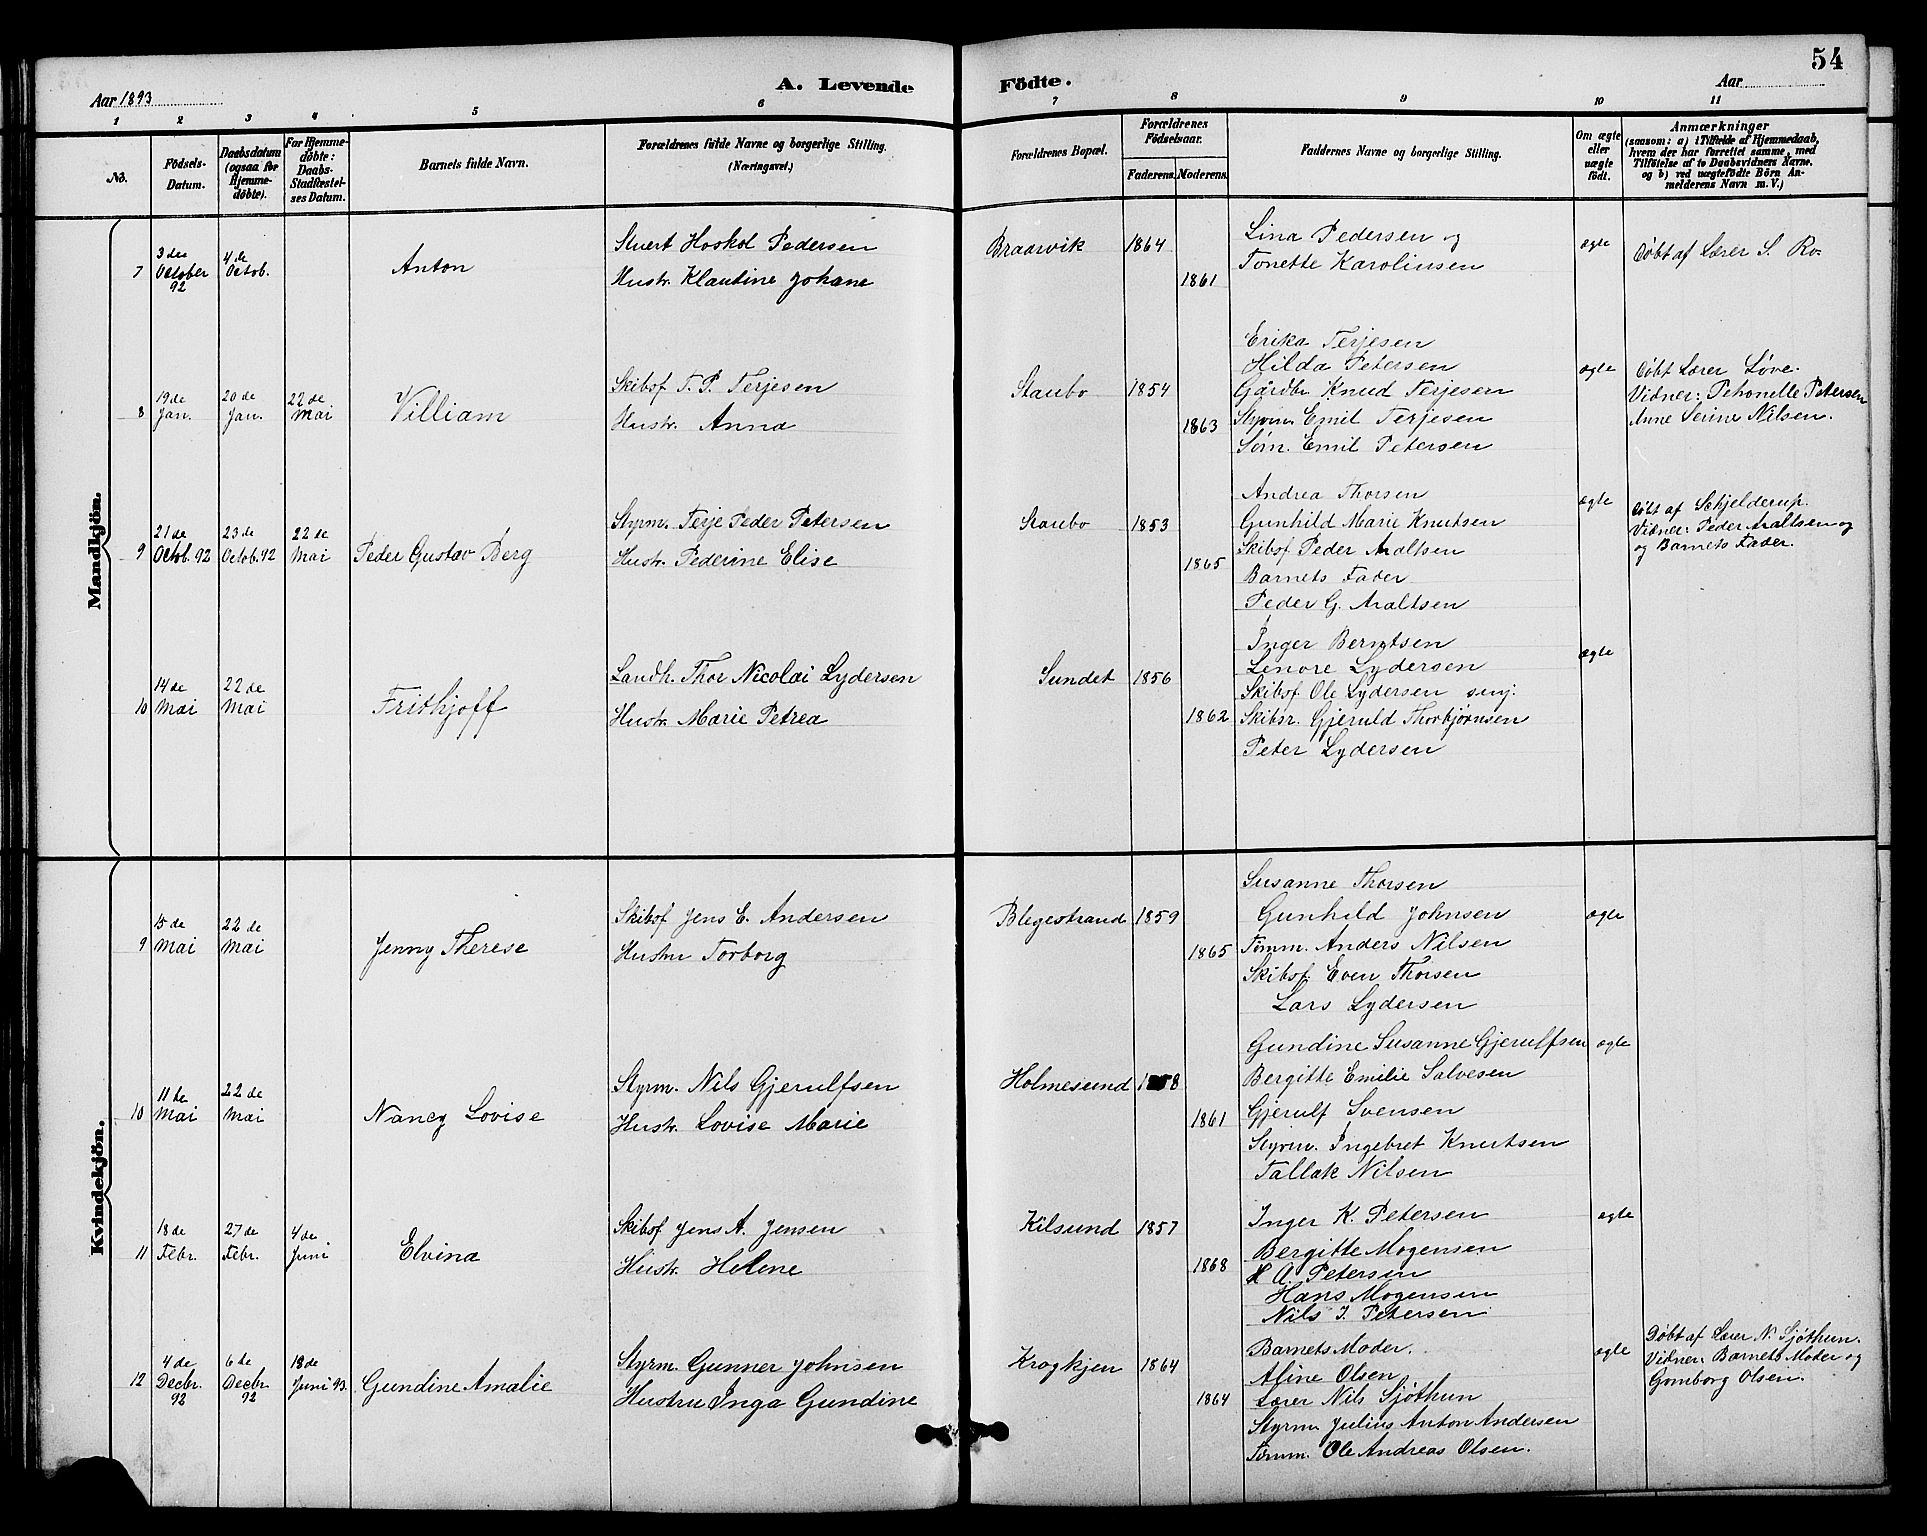 Aar 1893
A. Levende
Födte.
Aar
54
1 2 3 4 5 6 7 8 9 10 11
No.
Födsels-Datum.
Daabsdatum (ogsaa for Hjemme-döbte).
For Hjemme-döbte: Daabs-Stadfæstel-ses Datum.
Barnets fulde Navn.
Forældrenes fulde Navne og borgerlige Stilling. (Næringsvei.)
Forældrenes Bopæl.
Forældrenes Födselsaar.
Faderens. Moderens.
Faddernes Navne og borgerlige Stilling.
Om ægte eller uægte födt.
Anmærkninger
(saasom: a) i Tilfælde af Hjemmedaab,
hvem der har forrettet samme, med
Tilföielse af to Daabsvidners Navne.
og b) ved uægtefödte Börn An-
melderens Navn m. V.)
Mandkjön.
7
3die October 92
4de Octob.
Anton
Stuert Haskol Pedersen
Hustr. Klautine Johane
Braarvik
1864
1861
Lina Pedersen og
Tonette Karolinsen
ægte
Døbt af Lærer S. Ro.
8
19de Jan.
20de Jan.
22de Mai
Villiam
Skibsf T. P. Terjesen
Hustr. Anna
Staubo
1854
1863
Erika Terjesen
Hilda Petersen
Gårdbr. Knud Terjesen
Styrm. Emil Terjesen
Søm. Emil Petersen
ægte
Døbt Lærer Løve.
Vidner: Petronelle Petersen
Anne Serine Nilsen.
9
21de Octob. 92
23de Octob. 92
22de Mai
Peder Gustav Berg
Styrm. Terje Peder Petersen
Hustr. Pederine Elise
Staubo
1853
1865
Andrea Thorsen
Gunhild Marie Knutsen
Skibsf Peder Araltsen
Barnets Fader
Peder G. Araltsen
ægte
Døbt af Schjelderup.
Vidner: Peder Araltsen og
og Barnets Fader.
10
14de Mai
22de Mai
Frithjoff
Landh. Thor Nicolai Lydersen
Hustr. Marie Petrea
Sundet
1856
1862
Inger Berntsen
Lenore Lydersen
Skibsf Ole Lydersen senj.
Skibsr. Gjeruld Thorbjørnsen
Peter Lydersen
ægte
Kvindekjön.
9
15de Mai
22de Mai
Jenny Therese
Skibsf Jens E. Andersen
Hustru Torborg
Blegestrand
1859
1865
Susanne Thorsen
Gunhild Johnsen
Tømm. Anders Nilsen
Skibsf. Even Thorsen
Lars Lydersen
ægte
10
11te Mai
22de Mai
Nancy Lovise
Styrm. Nils Gjerulfsen
Hustr. Lovise Marie
Holmesund
1858
1861
Gundine Susanne Gjerulfsen
Bergitte Emilie Salvesen
Gjerulf Svensen
Styrm. Ingebret Knutsen
Tallak Nilsen
ægte
11
18de Febr.
27de Febr.
4de Juni
Elvina
Skibsf Jens A. Jensen
Hustr. Helene
Kilsund
1857
1868
Inger K. Petersen
Bergitte Mogensen
A. Petersen
Hans Mogensen
Nils J. Petersen
ægte
12
4de Decbr. 92
6te Decbr. 92
18de Juni 93.
Gundine Amalie
Styrm. Gunner Johnsen
Hustru Inga Gundine
Krogkjen
1864
1864
Barnets Moder.
Aline Olsen
Lærer Nils Sjøthun
Styrm. Julius Anton Andersen
Tømm. Ole Andreas Olsen.
ægte
Døbt af Lærer N. Sjøthun.
Vidner: Barnets Moder og
Gomborg Olsen.